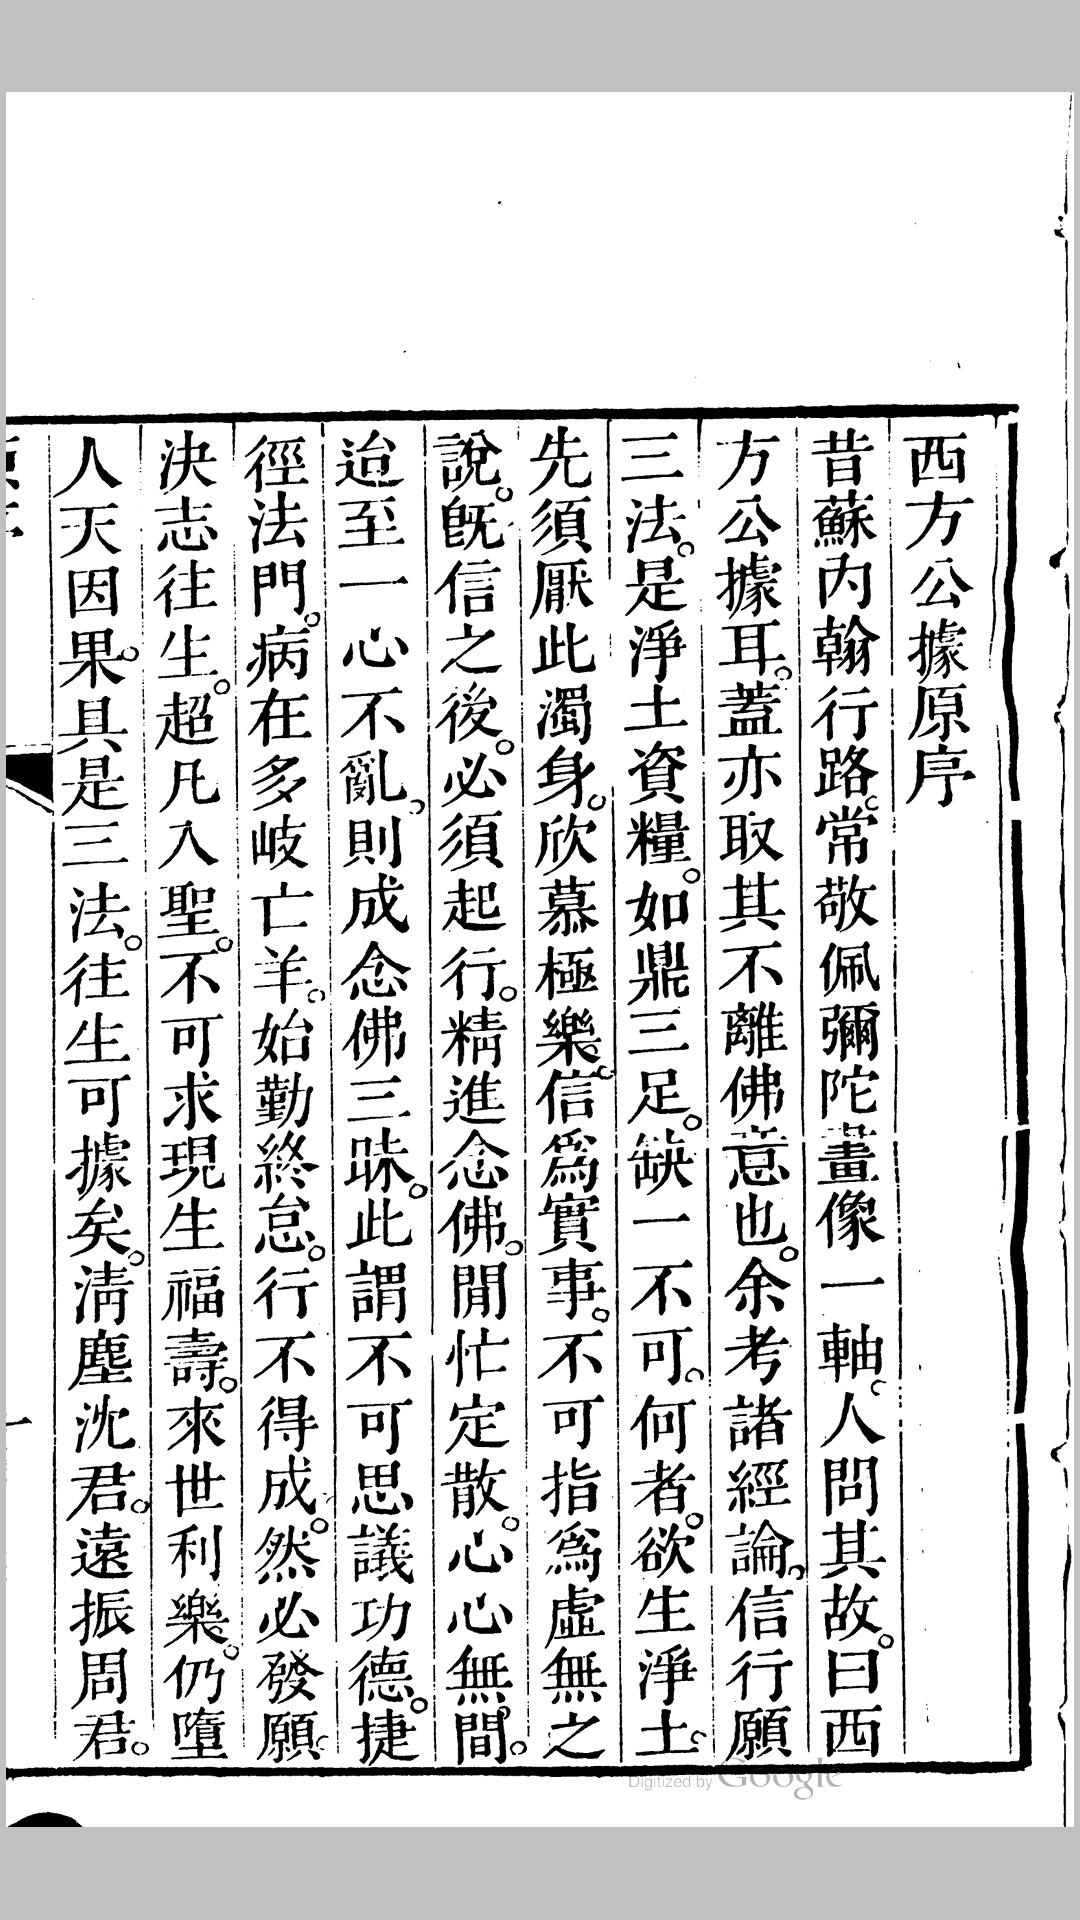 西方公據原序
昔蘇內翰行路。常敬佩彌陀畫像一軸。人問其故。曰西
方公據耳。蓋亦取其不離佛意也。余考諸經論。信行願
三法。是淨土資糧。如鼎三足。缺一不可。何者。欲生淨土。
先須厭此濁身。欣慕極樂。信爲實事。不可指爲虛無之
說。旣信之後。必須起行。精進念佛。閒忙定散。心心無間。
迨至一心不亂。則成念佛三昧。此謂不可思議功德。捷
徑法門。病在多岐亡羊。始勤終怠。行不得成。然必發願。
決志往生。超凡入聖。不可求現生福壽。來世利樂。仍墮
人天因果。具是三法。往生可據矣。淸塵沈君。遠振周君。
一
Digitized by Google